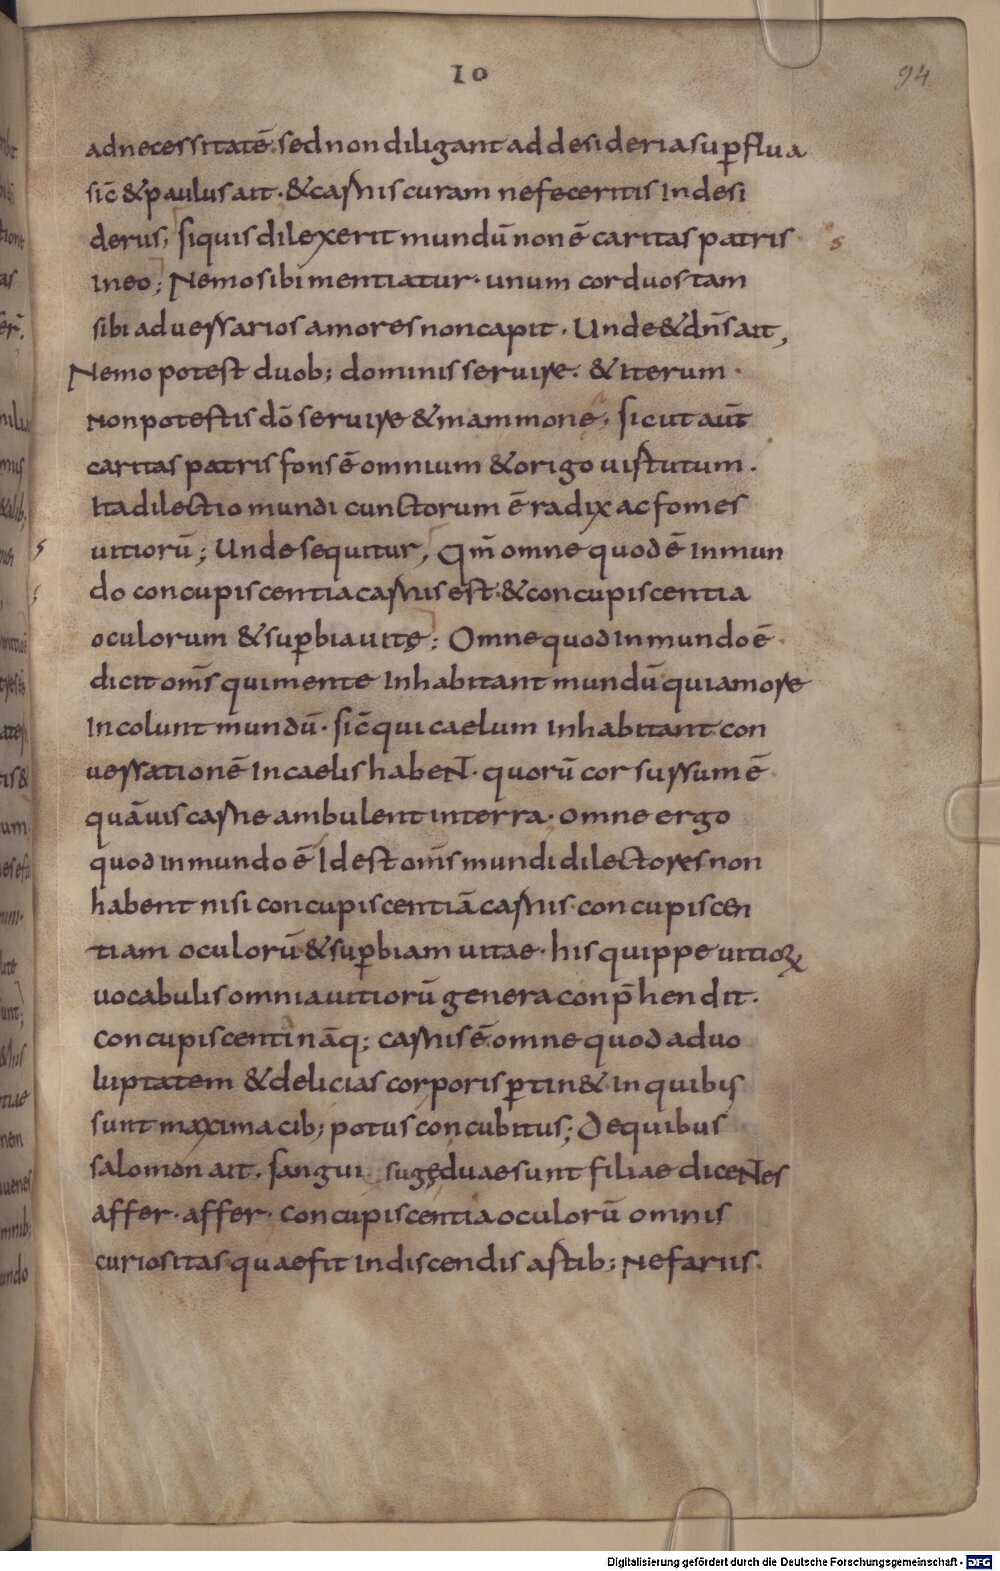 IO
94
ad necessitatē. sed non diligant ad desideria suꝑflua
sic̄ & paulus ait · & carnis curam ne feceritis In desi
deriis, si quis dilexerit mundū non ē caritas patris · s
In eo ; Nemo sibi mentiatur · unum cor duos tam
sibi aduersarios amores non capit · Unde & dn̄s ait,
Nemo potest duob; dominis seruire. & Iterum ·
Non potestis dō seruire & mammone, sicut aūt
caritas patris fons ē omnium & origo uirtutum .
Ita dilectio mundi cunctorum ē radix ac fomes
uitiorū ; Unde sequitur, Qm̄ omne quod ē In mun
do concupiscentia carnis est · & concupiscentia
oculorum & suꝑbia uitę ; Omne quod In mundo ē ·
dicit om̄s qui mente Inhabitant mundū qui amore
Incolunt mundū · sic̄ qui caelum Inhabitant con
uersationē In caelis habeNT · quorū cor sursum ē ·
quāuis carne ambulent in terra · omne ergo
quod in mundo ē Id est om̄s mundi dilectores non
habent nisi concupiscentiā carnis · concupiscen
tiam oculorū & suꝑbiam uitae · his quippe uitioꝝ
uocabulis omnia uitiorū genera conp̄hendit ·
Concupiscenti nāq; carnis ē omne quod ad uo
luptatem & delicias corporis ꝑtin& · In quibus
sunt maxima cib; potus concubitus ; De quibus
salomon ait, sangui sugę duae sunt filiae diceNTes
affer · affer · Concupiscentia oculorū omnis
curiositas quae fit In discendis artib; Nefariis ·
Digitalisierung gefördert durch die Deutsche Forschungsgemeinschaft - DFG